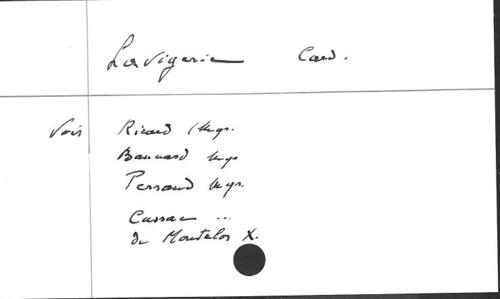 Lavigerie Card.
Voir Ricard (Mgr.
Baunard Mgr
Perraud Mgr.
Cussac ...
de Montclos X.